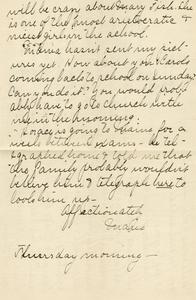 will be crazy about Mary Fish. She
is one of the most aristocratic &
nicest girls in the school.
hasn't sent my pict-
ures yet. How about you & Carols
coming back to school on Sunday?
Can you do it? You would prob-
ably have to go to church with
me in the morning.
is going to Maine for a
week between exams - He tel-
egraphed home & told me that
the family probably wouldn't
believe him & telegraph here to
look him up -
Affectionately

Thursday morning -